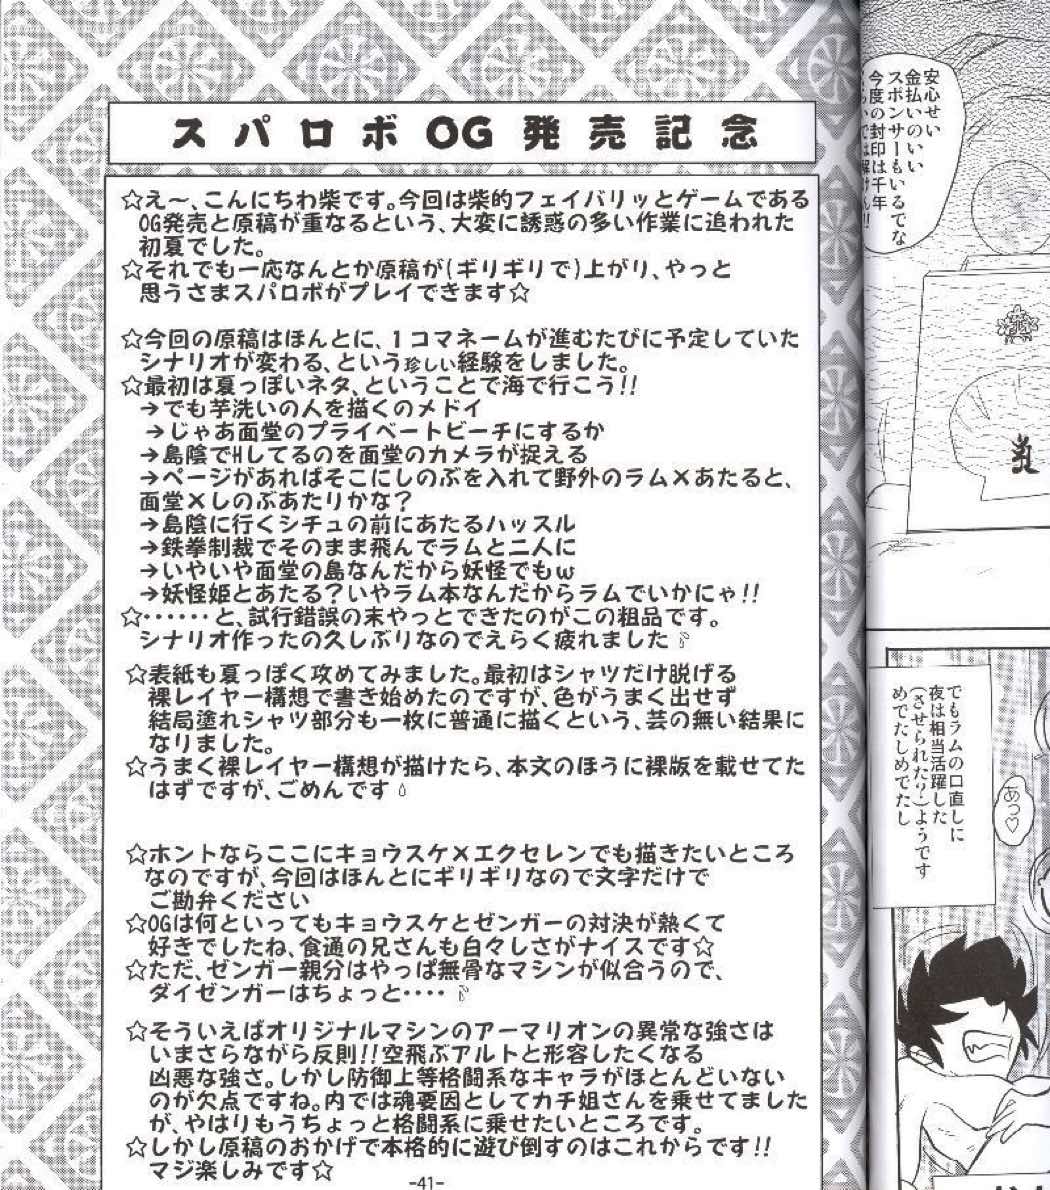 スパロボOG発売記念
☆え～、こんにちわ柴です。今回は柴的フェイバリッとゲームである
OG発売と原稿が重なるという、大変に誘惑の多い作業に追われた
初夏でした。
☆それでも一応なんとか原稿が(ギリギリで)上がり、やっと
思うさまスパロボがプレイできます☆
☆今回の原稿はほんとに、1コマネームが進むたびに予定していた
シナリオが変わる、という珍しい経験をしました。
☆最初は夏っぽいネタ、ということで海で行こう!!
→でも芋洗いの人を描くのメドイ
→じゃあ面堂のプライベートビーチにするか
→島陰でHしてるのを面堂のカメラが捉える
→ページがあればそこにしのぶを入れて野外のラム×あたると、
面堂×しのぶあたりかな？
→島陰に行くシチュの前にあたるハッスル
→鉄拳制裁でそのまま飛んでラムと二人に
→いやいや面堂の島なんだから妖怪でもω
→妖怪姫とあたる？いやラム本なんだからラムでいかにゃ!!
☆・・・・・・と、試行錯誤の末やっとできたのがこの粗品です。
シナリオ作ったの久しぶりなのでえらく疲れました
☆表紙も夏っぽく攻めてみました。最初はシャツだけ脱げる
裸レイヤー構想で書き始めたのですが、色がうまく出せず
結局塗れシャツ部分も一枚に普通に描くという、芸の無い結果に
なりました。
☆うまく裸レイヤー構想が描けたら、本文のほうに裸版を載せてた
はずですが、ごめんです
☆ホントならここにキョウスケ×エクセレンでも描きたいところ
なのですが、今回はほんとにギリギリなので文字だけで
ご勘弁ください
☆OGは何といってもキョウスケとゼンガーの対決が熱くて
好きでしたね、食通の兄さんも白々しさがナイスです☆
☆ただ、ゼンガー親分はやっぱ無骨なマシンが似合うので、
ダイゼンガーはちょっと・・・・
☆そういえばオリジナルマシンのアーマリオンの異常な強さは
いまさらながら反則!!空飛ぶアルトと形容したくなる
凶悪な強さ。しかし防御上等格闘系なキャラがほとんどいない
のが欠点ですね。内では魂要因としてカチ姐さんを乗せてました
が、やはりもうちょっと格闘系に乗せたいところです。
☆しかし原稿のおかげで本格的に遊び倒すのはこれからです!!
マジ楽しみです☆
-41-
安心せい
金払いのいい
スポンサーもいるでな
今度の封印は千年
でもラムの口直しに
夜は相当活躍した
(させられた？)ようです
めでたしめでたし
あっ♡